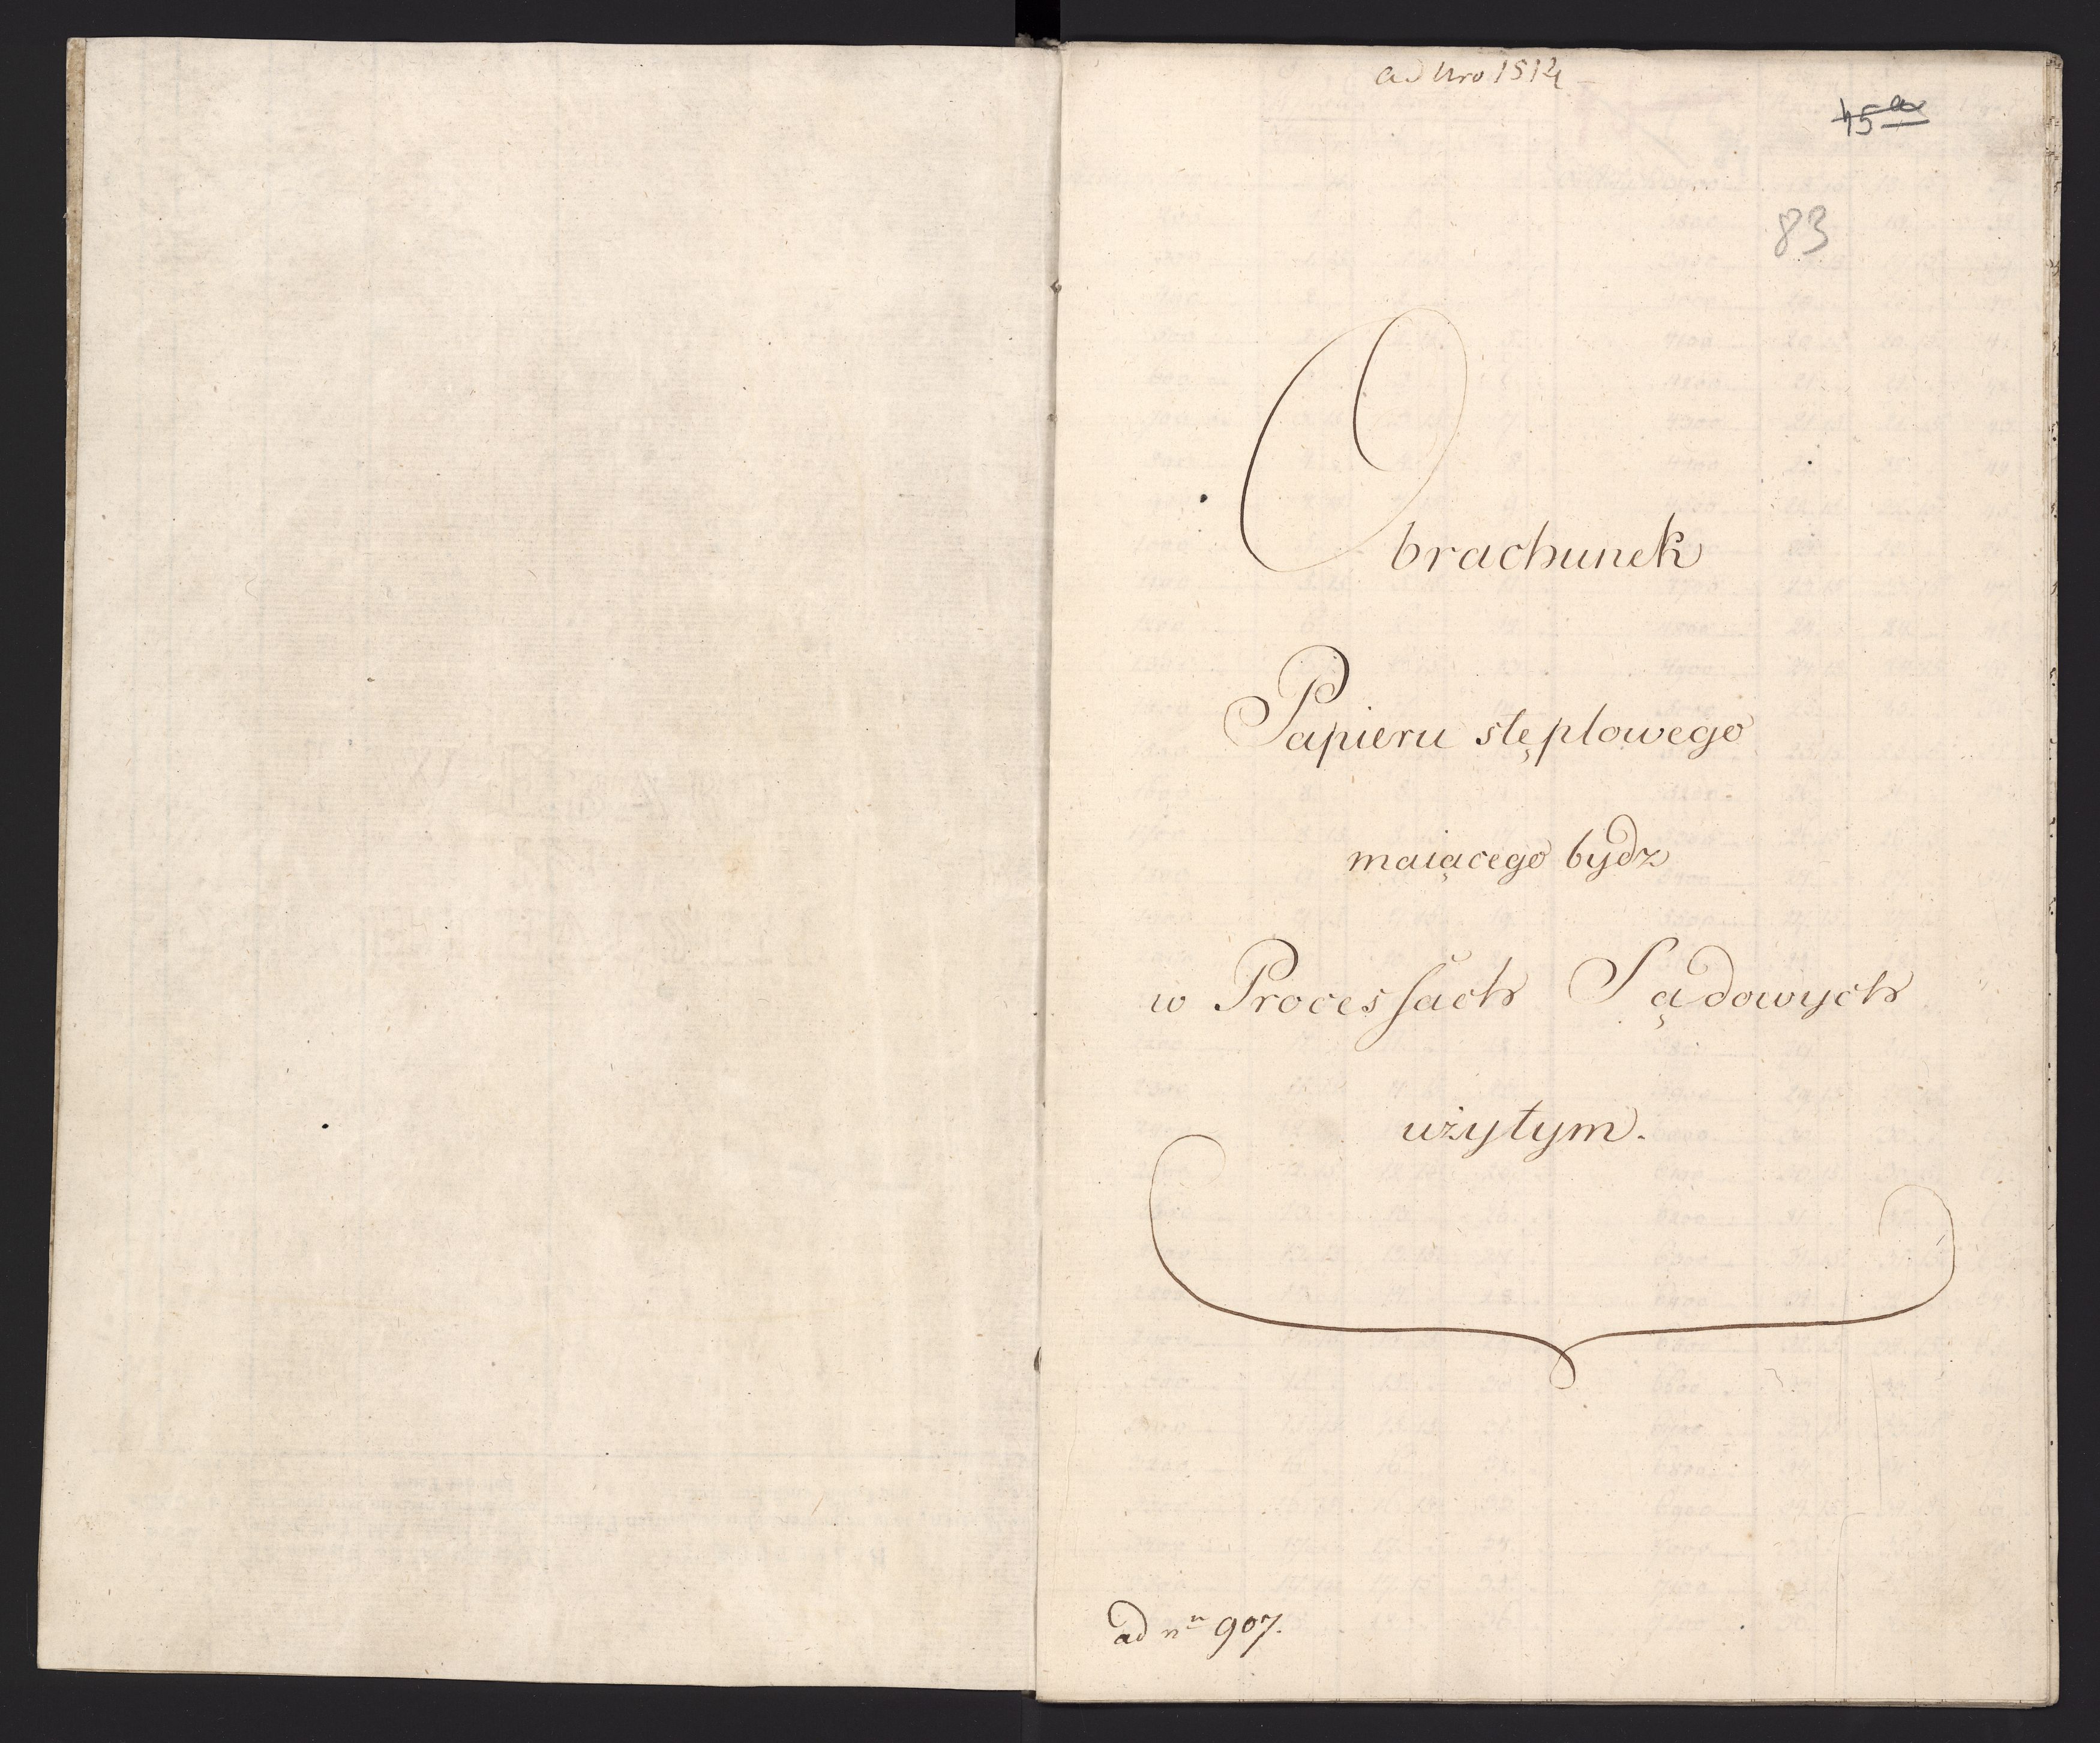 ad Nro 1512
45 a
83
Obrachunek
Papieru stęplowego
maiącego bydz
w Processach Sądowych
użytym.
ad nr 907.